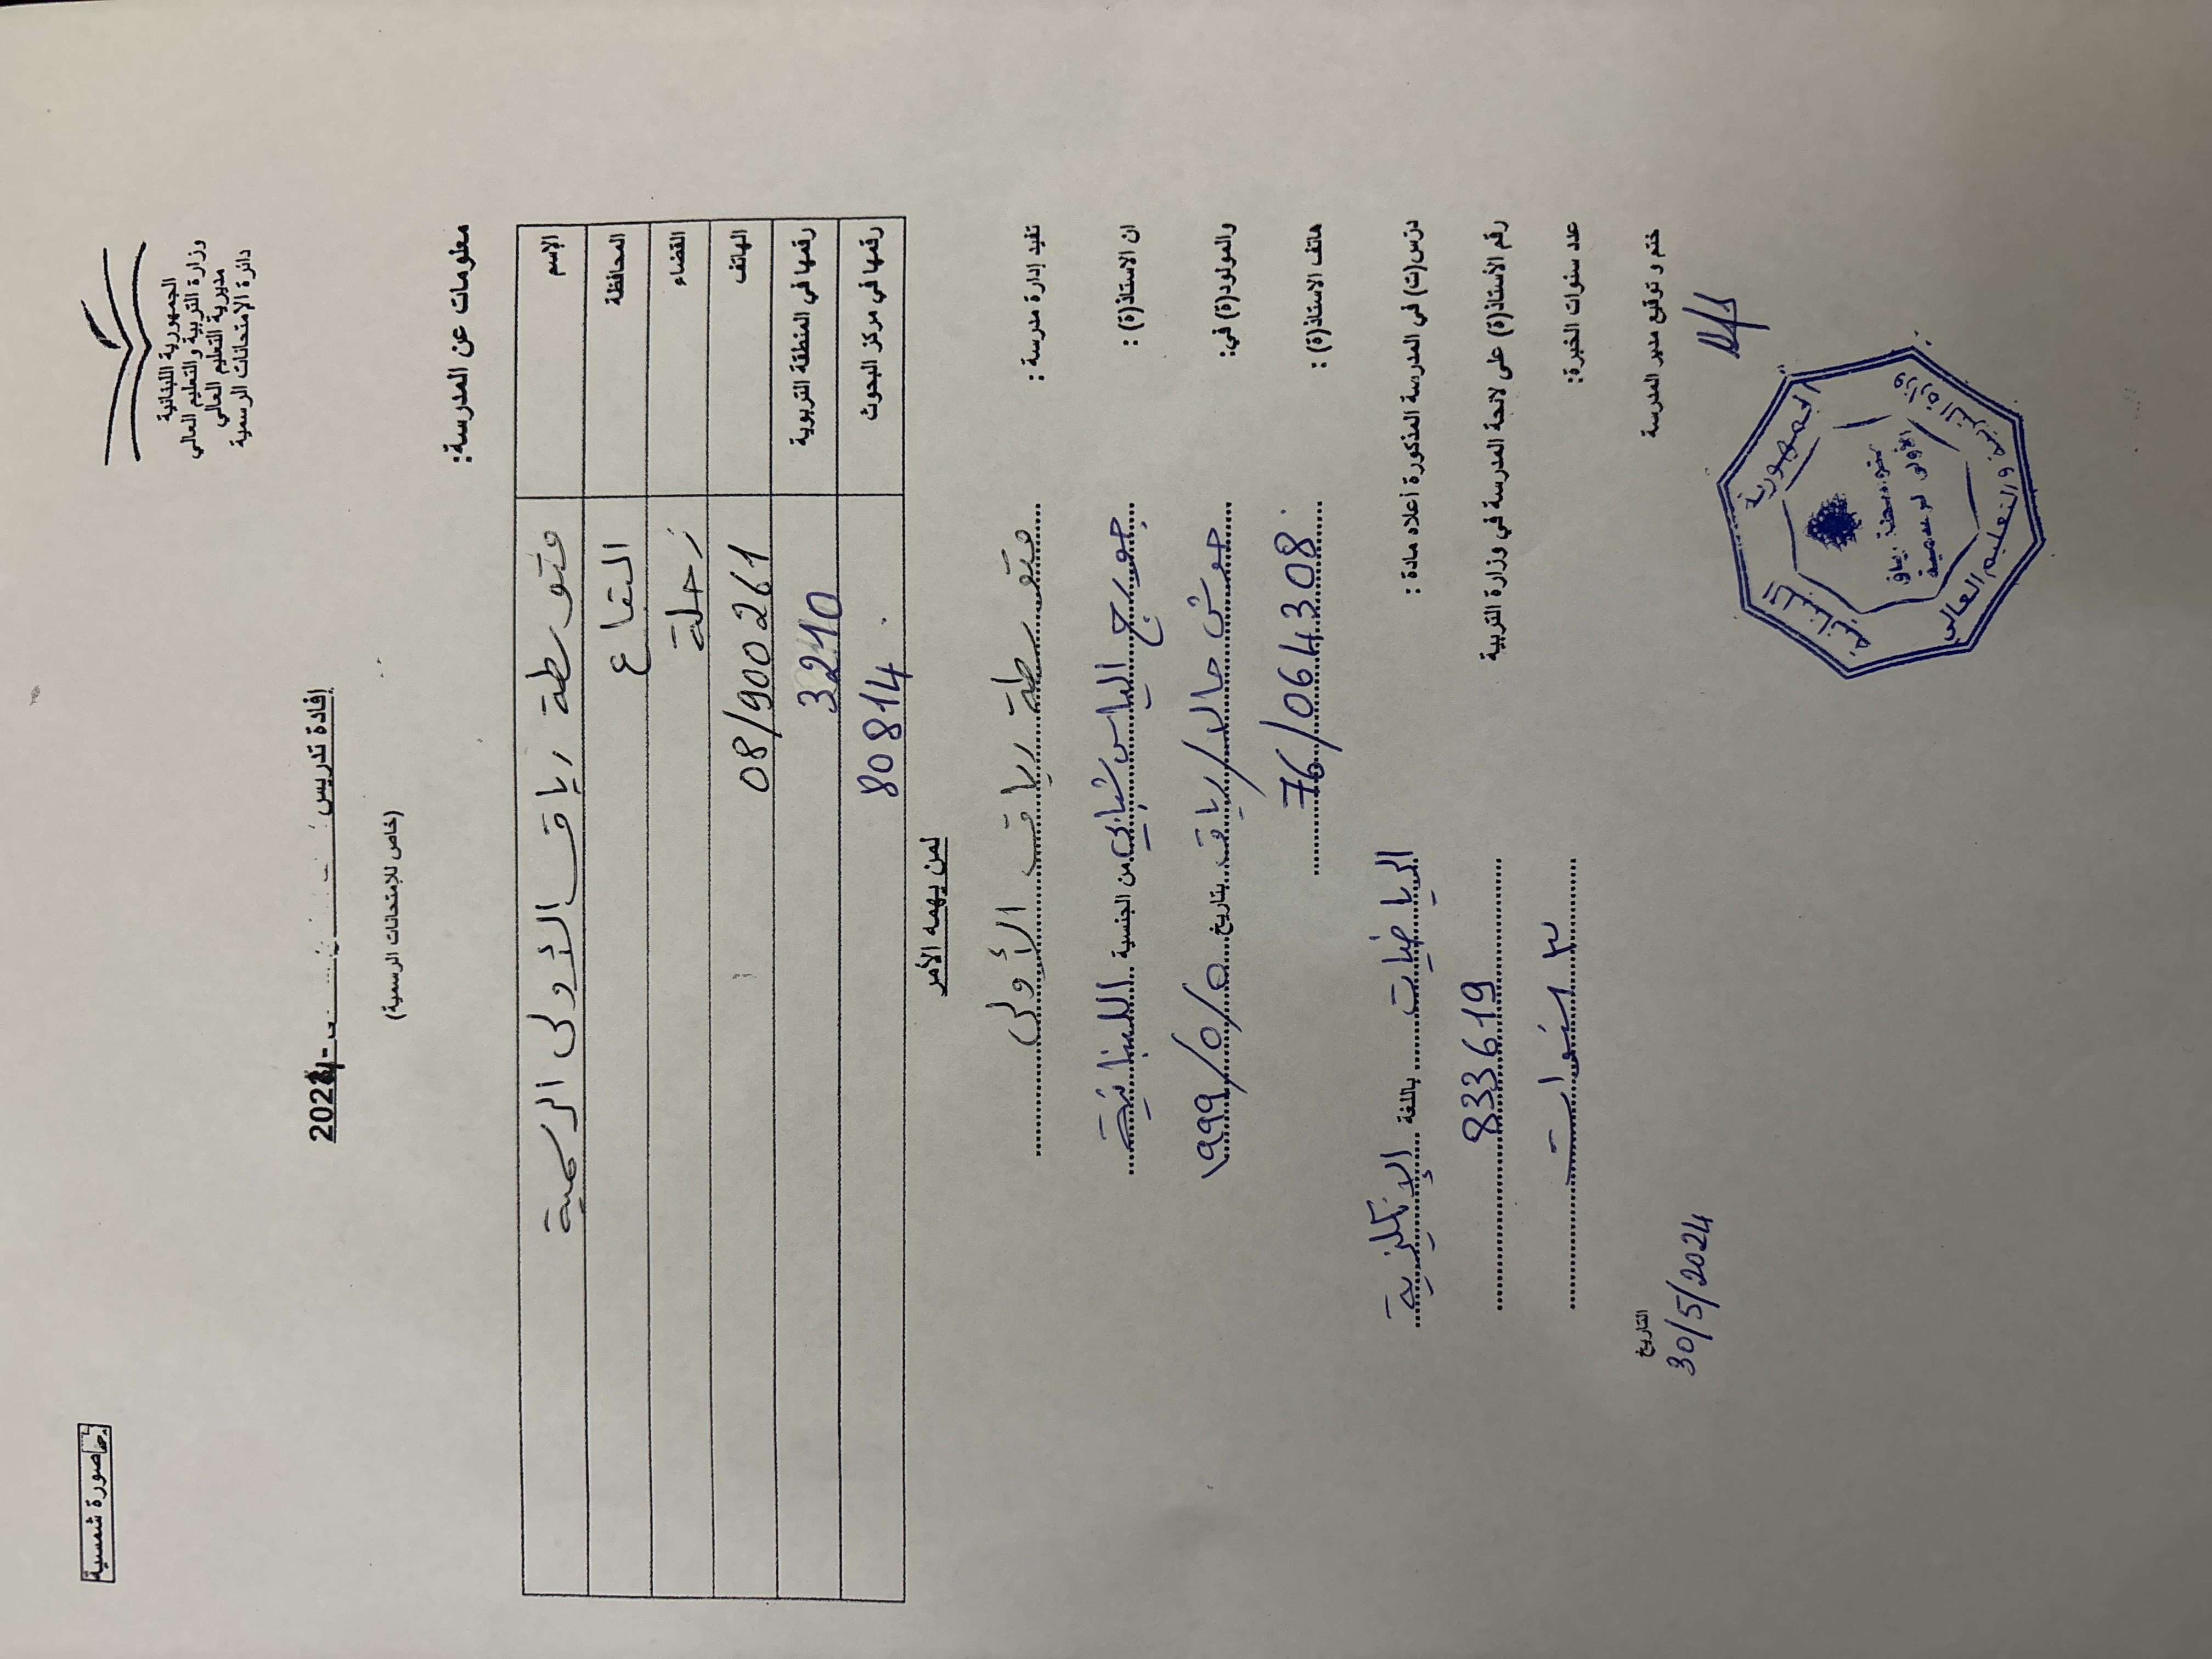 صورة شمسية
الجمهورية اللبنانية
وزارة التربية والتعليم العالي
مديرية التعليم العالي
دائرة الإمتحانات الرسمية
إفادة تدريس
2024-
(خاص للإمتحانات الرسمية)
معلومات عن المدرسة:
الإسم متوسطة رياق الأولى الرسمية
المحافظة البقاع
القضاء زحلة
الهاتف 08/900261
رقمها في المنطقة التربوية 3210
رقمها في مركز البحوث 80814
لمن يهمه الأمر
تفيد إدارة مدرسة : متوسطة رياق الأولى
ان الاستاذ(ة) : جورج الياس شبابي من الجنسية اللبنانية
والمولود(ة) في: حوش حالا/رياق بتاريخ ٥/٥/١٩٩٩
هاتف الاستاذ(ة) : 76/064308
درّس(ت) في المدرسة المذكورة أعلاه مادة : الرياضيات باللغة الإنكليزية
رقم الأستاذ(ة) على لائحة المدرسة في وزارة التربية 833619
عدد سنوات الخبرة: ٣ سنوات
ختم و توقيع مدير المدرسة
التاريخ
30/5/2024
الجمهورية اللبنانية
وزارة التربية والتعليم العالي
متوسطة رياق
الأولى الرسمية